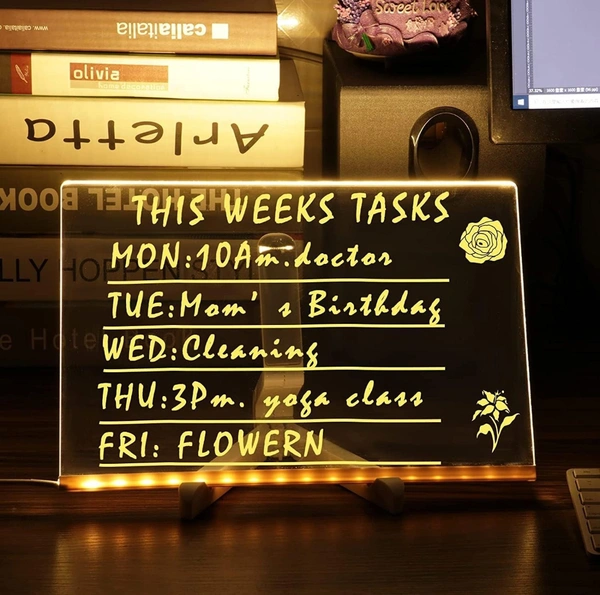 www.callaitalia.
callaitalia
olivia
Arletta
THE HOTEL BOOK
LLY HOPPEN STYL
e Hotel
Sweet Love
THIS WEEKS TASKS
MON:10Am.doctor
TUE:Mom's Birthdag
WED:Cleaning
THU:3Pm. yoga class
FRI: FLOWERN